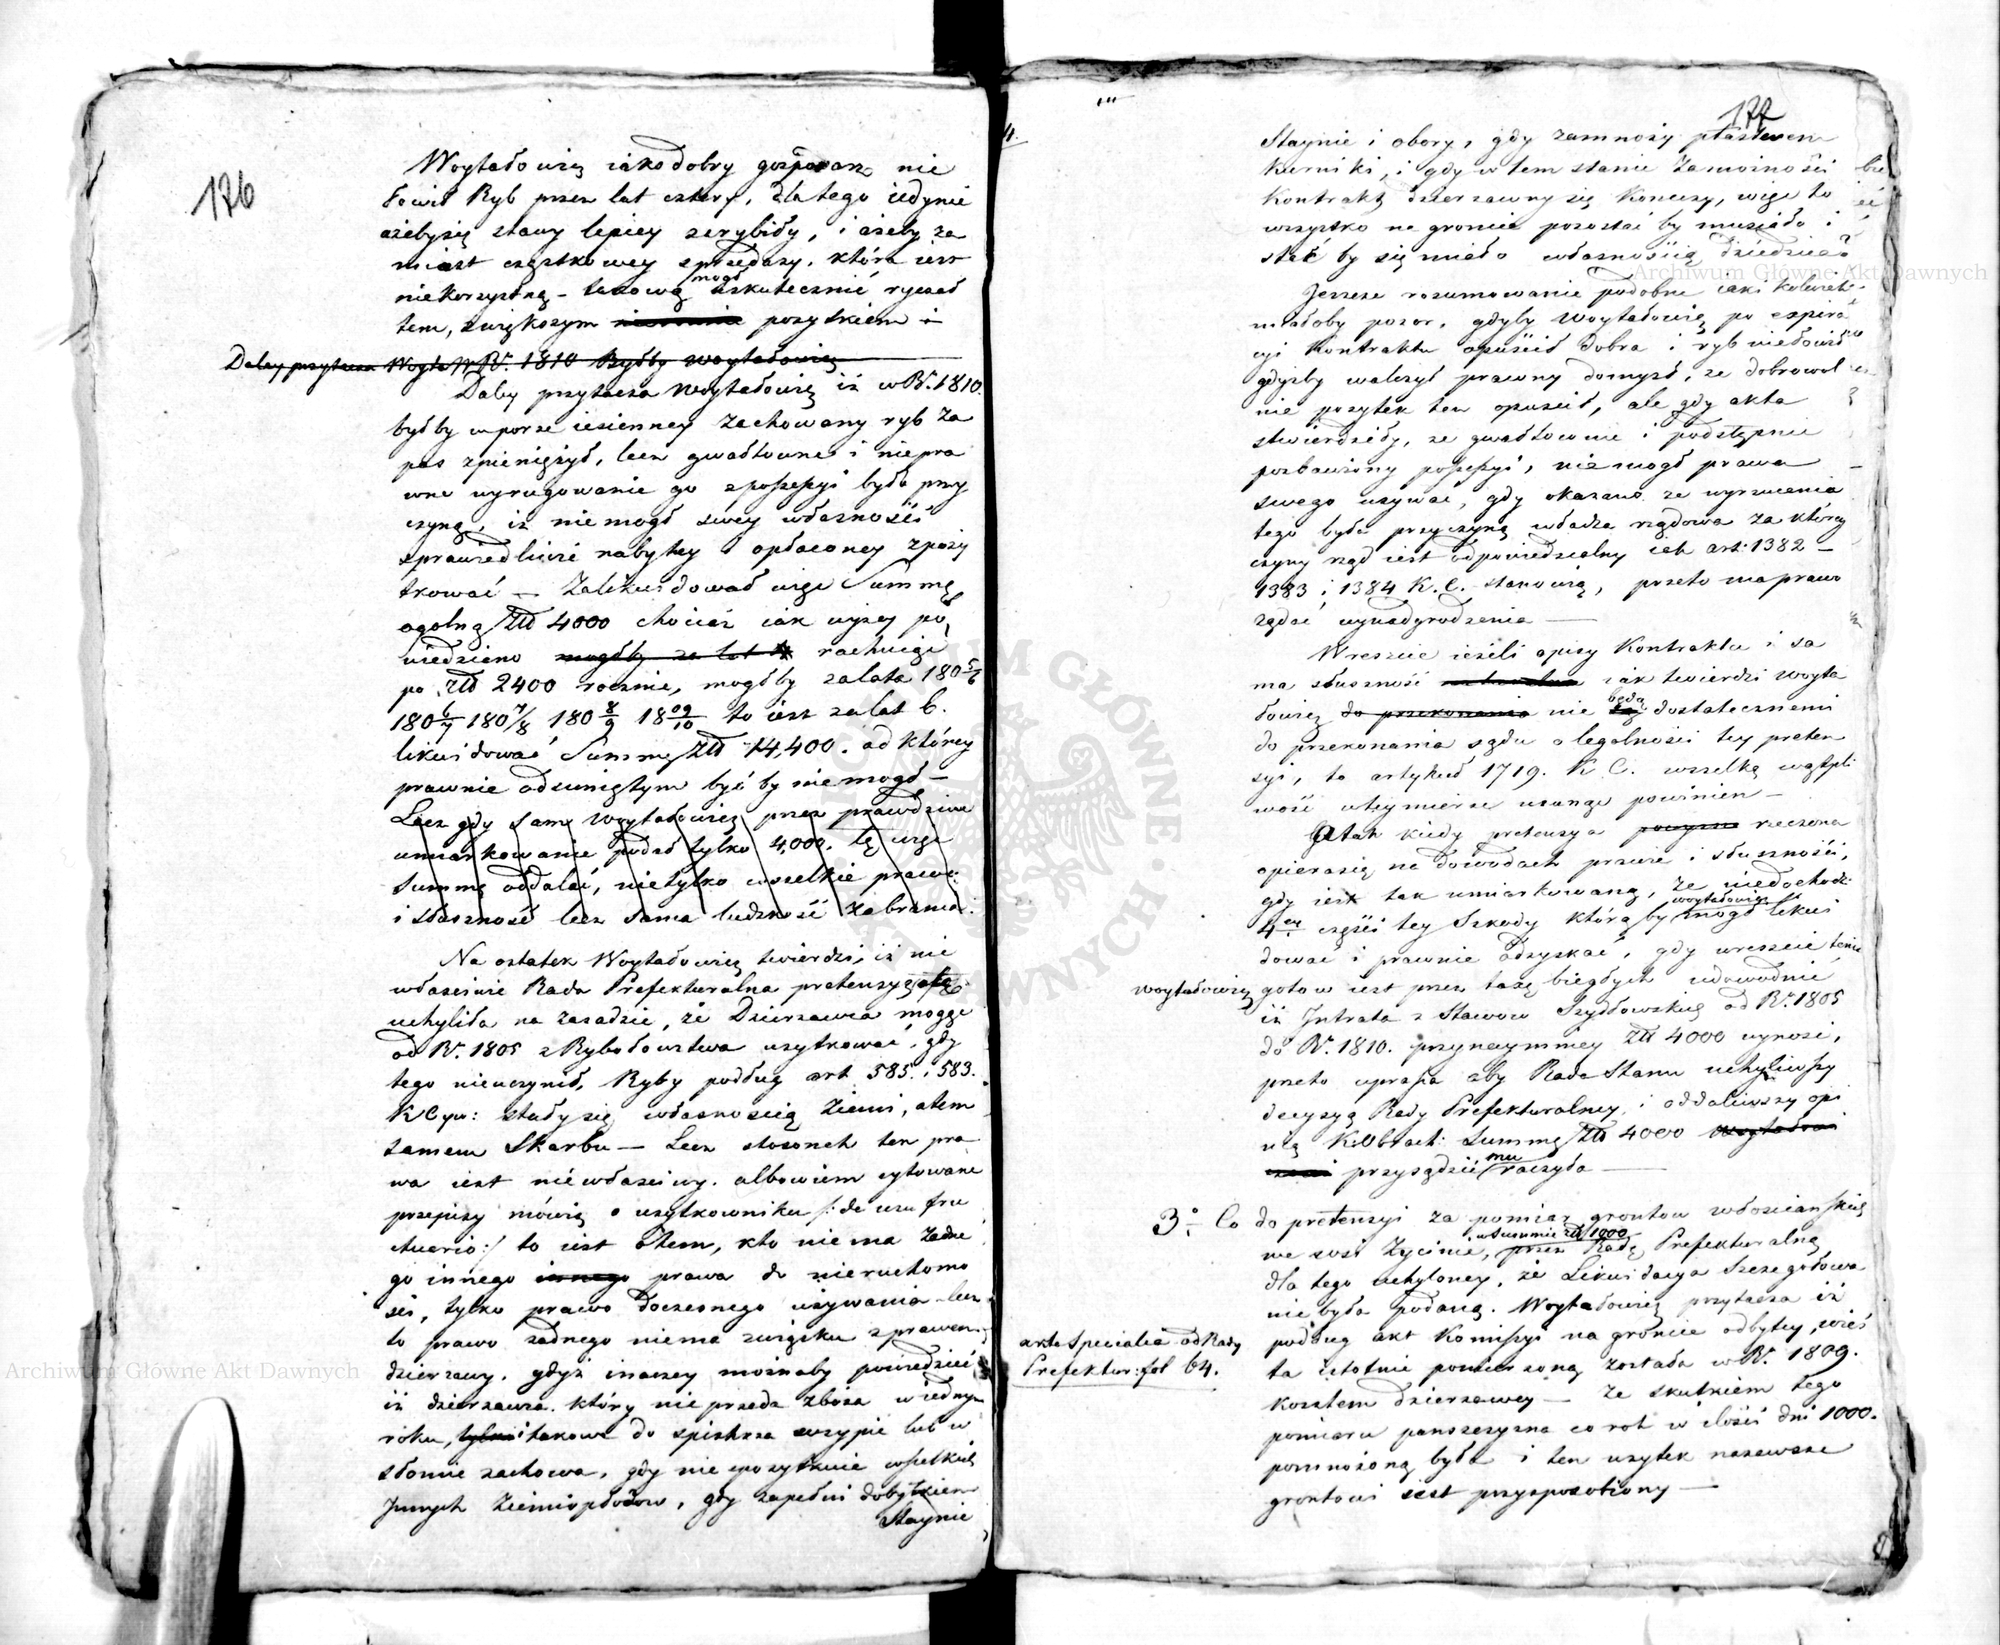 176
Woytałowicz iako dobry gospodarz nie
łowił Ryb przez lat cztery, dla tego iedynie
ażeby się stawy lepiey zarybiły, i ażeby za
miast cząstkowey sprzedaży, która iest
niekorzystną - takową mógł uskutecznić ryczał
tem, zwiększym pożytkiem i
Daley przytacza Woyta W R. 1810 Byłby Woytałowicz
Daley przytacza Woytałowicz iż w R. 1810
byłby w porze iesienney zachowany ryb za
pas spieniężył, lecz gwałtowne i niepra
wne wyrugowanie go z possessyi było przy
czyną, iż nie mogł swey własności
sprawiedliwie nabytey i opłaconey zpoży
tkować — Zalikwidował więc Summę
ogolną Złł 4000 chociaż iak wyżey po
wiedziano mogłby za lat 4 rachuiąc
po Złł 2400 rocznie, mogłby za lata 180 5/6
180 6/7 180 7/8 180 8/9 18 09/10 to iest za lat 6.
likwidować Summę Złł 14,400. od którey
prawnie odsuniętym być by nie mogł —
Lecz gdy sam Woytałowicz przez prawdziwe
umiarkowanie podał tylko 4,000. tę więc
Summę oddalać, nie tylko wszelkie prawo
i słuszność lecz sama ludzkość zabrania.
Na ostatek Woytałowicz twierdzi, iż nie
właściwie Rada Prefekturalna pretensyę tę
uchyliła na zasadzie, że Dzierżawca mogąc
od R. 1805 z Rybołowstwa użytkować, gdy
tego nie uczynił, Ryby podług art 585. i 583.
K Cyw: stały się własnością Ziemi, a tem
samem Skarbu — Lecz stosunek ten pra
wa iest niewłaściwy. albowiem cytowane
przepisy mówią o użytkowniku /: de usu fru
ctuario :/ to iest o tem, kto nie ma żadne
go innego innego prawa do nieruchomo
ści, tylko prawo doczesnego używania - lecz
to prawo żadnego niema związku z prawem
dzierżawy. gdyż inaczey możnaby powiedzieć
iż dzierżawca. który nie przeda zboża w iednym
roku, tylko i takowe do spichrza wsypie lub w
słomie zachowa, gdy nie spożytkuie wszelkich
Innych Ziemiopłodow, gdy zapełni dobytkiem
Staynie
177
4.
Staynie i obory, gdy zamnoży ptastwem
Kurniki, i gdy w tem stanie zamożności
Kontrakt dzierżawny się Kończy, więc to
wszystko na groncie pozostać by musiało i
stać by się miało własnością dziedzica
Jeszcze rozumowanie podobne iaki kolwiek
miałoby pozor, gdyby Woytałowicz po expira
cyi Kontraktu opuścił dobra i ryb nie łowił
gdyżby walczył prawny domysł, że dobrowol
nie pożytek ten opuścił, ale gdy akta
stwierdziły, że gwałtownie i podstępnie
pozbawiony possessyi, nie mogł prawa
swego używać, gdy okazano że wyrzucenia
tego była przyczyną władza rządowa za którey
czyny rząd iest odpowiedzialny iak art: 1382 —
1383 i 1384 K. C. stanowią, przeto ma prawo
żądać wynadgrodzenia —
Wreszcie ieżeli opisy Kontraktu i sa
ma słuszność iak twierdzi Woyta
łowicz do przekonania nie będą dostatecznemi
do przekonania sądu o legalności tey preten
syi, to artykuł 1719. K C. wszelką wątpli
wość w tey mierze usunąć powinien —
A tak kiedy pretensya rzeczona
opiera się na dowodach prawie i słuszności,
gdy iest tak umiarkowaną, że niedochodzi
4ey części tey Szkody którą by Woytałowicz mogł likwi
dować i prawnie odzyskać, gdy wreszcie tenże
Woytałowicz gotow iest przez taxę biegłych udowodnić
iż Intrata z Stawow Szydłowskich od R. 1805
do R. 1810. przynaymniey Złł 4000 wynosi,
przeto uprasza aby Rada Stanu uchyliwszy
decyzyą Rady Prefekturalney, i oddaliwszy opi
nią K. Obrach: Summę Złł 4000 Woytałowi
czowi przysądzić mu raczyła —
3° Co do pretensyi za pomiar grontow włościańskich
we wsi Życinie, w Summie Złł 1000 przez Radę Prefekturalną
dla tego uchyloney, że Likwidacya Szczegółowa
nie była podaną. Woytałowicz przytacza iż
podług akt Kommissyi na groncie odbytey, wieś
akta Specialia od Rady
Prefektur: fol 64.
ta istotnie pomierzoną została w R. 1809.
kosztem dzierżawcy — że skutkiem tego
pomiaru panszczyzna co rok w ilości dni 1000.
pomnożoną była i ten użytek na zawsze
grontowi iest przysposobiony —
Archiwum Główne Akt Dawnych
Archiwum Główne Akt Dawnych